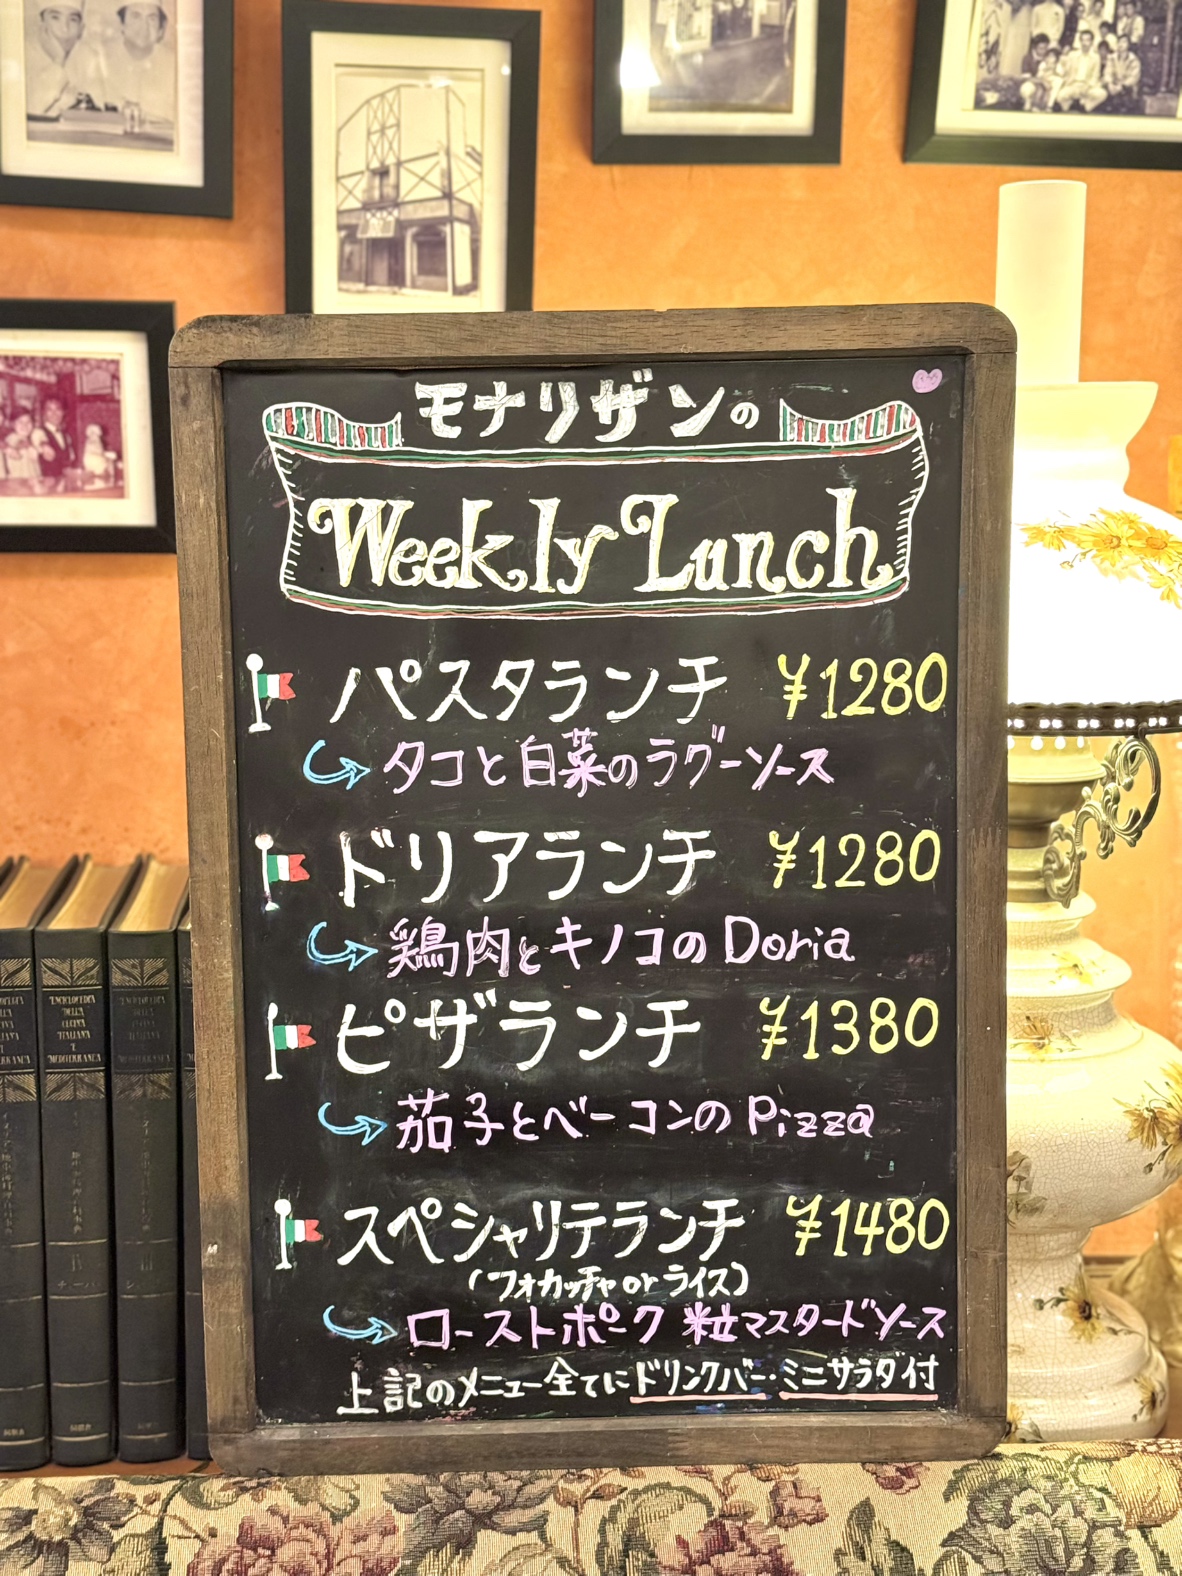 モナリザンの
Weekly Lunch
パスタランチ ¥1280
タコと白菜のラグーソース
ドリアランチ ¥1280
鶏肉とキノコのDoria
ピザランチ ¥1380
茄子とベーコンのPizza
スペシャリテランチ ¥1480
(フォカッチャ or ライス)
ローストポーク 粒マスタードソース
上記のメニュー全てにドリンクバー・ミニサラダ付
ENCICLOPEDIA
DELLA
CUCINA
ITALIANA
E
MEDITERRANEA